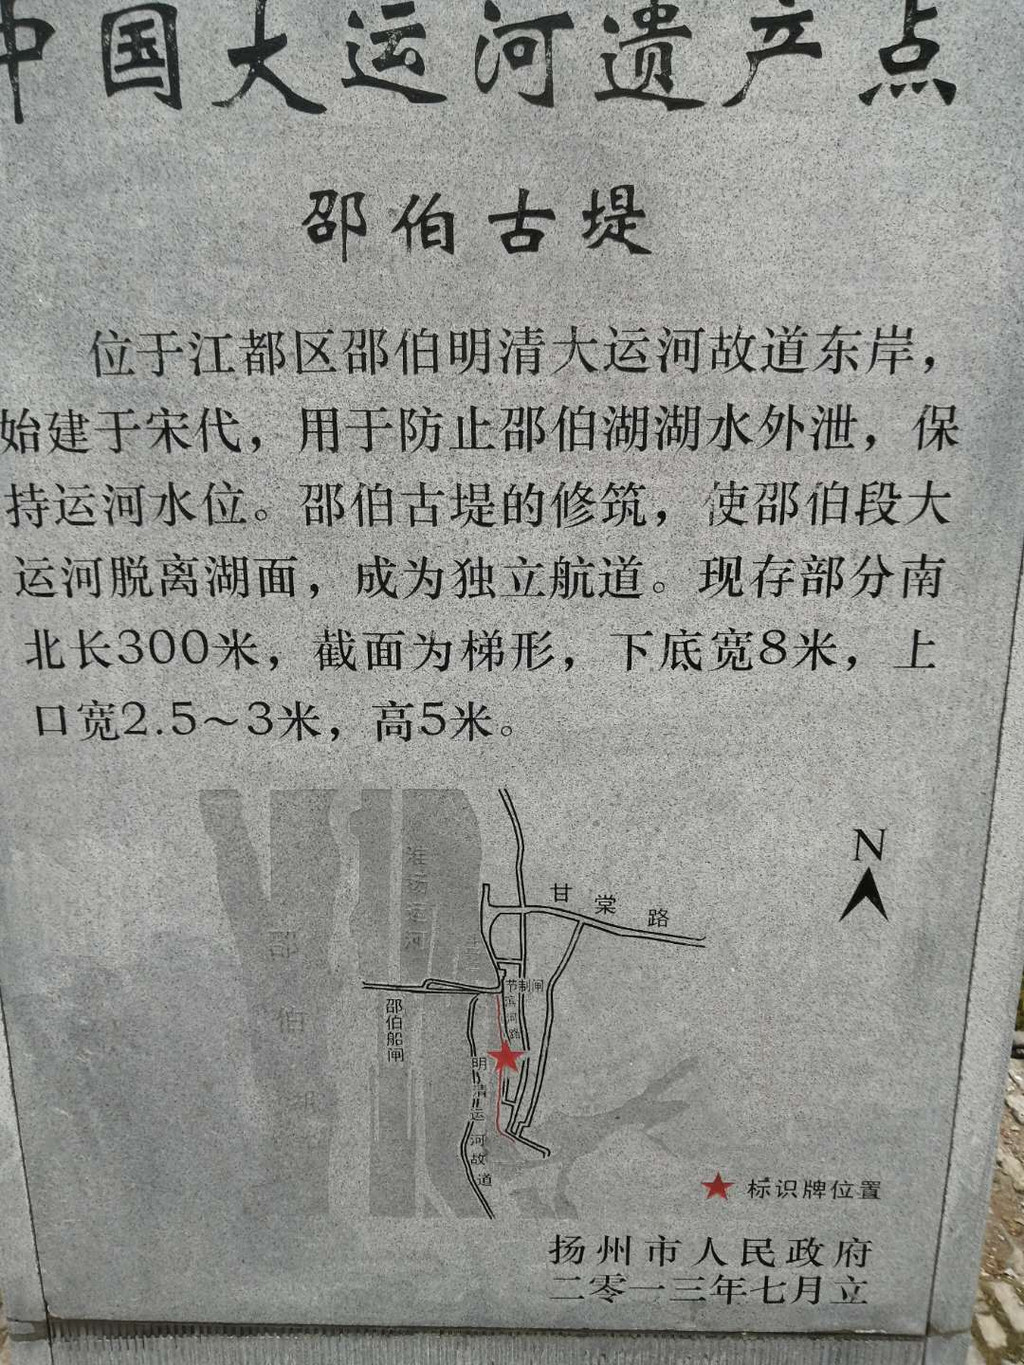 中国大运河遗产点
邵伯古堤
位于江都区邵伯明清大运河故道东岸，
始建于宋代，用于防止邵伯湖湖水外泄，保
持运河水位。邵伯古堤的修筑，使邵伯段大
运河脱离湖面，成为独立航道。现存部分南
北长300米，截面为梯形，下底宽8米，上
口宽2.5～3米，高5米。
N
淮扬运河
甘棠路
邵伯湖
节制闸
滨河路
邵伯船闸
明清运河故道
标识牌位置
扬州市人民政府
二零一三年七月立